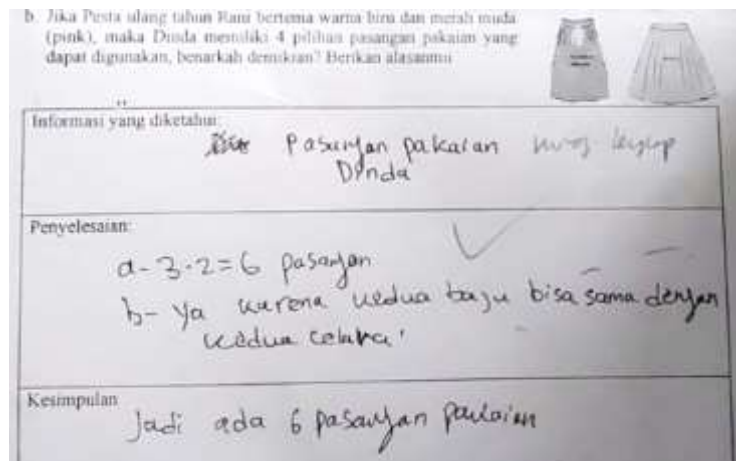 b. Jika Pesta ulang tahun Rani bertema warna biru dan merah muda
(pink), maka Dinda memiliki 4 pilihan pasangan pakaian yang
dapat digunakan, benarkah demikian? Berikan alasanmu
Informasi yang diketahui:
Pasangan pakaian
Dinda
Penyelesaian:
a - 3 . 2 = 6 pasangan
b - Ya karena kedua baju bisa sama dengan
kedua celana
Kesimpulan
Jadi ada 6 pasangan pakaian